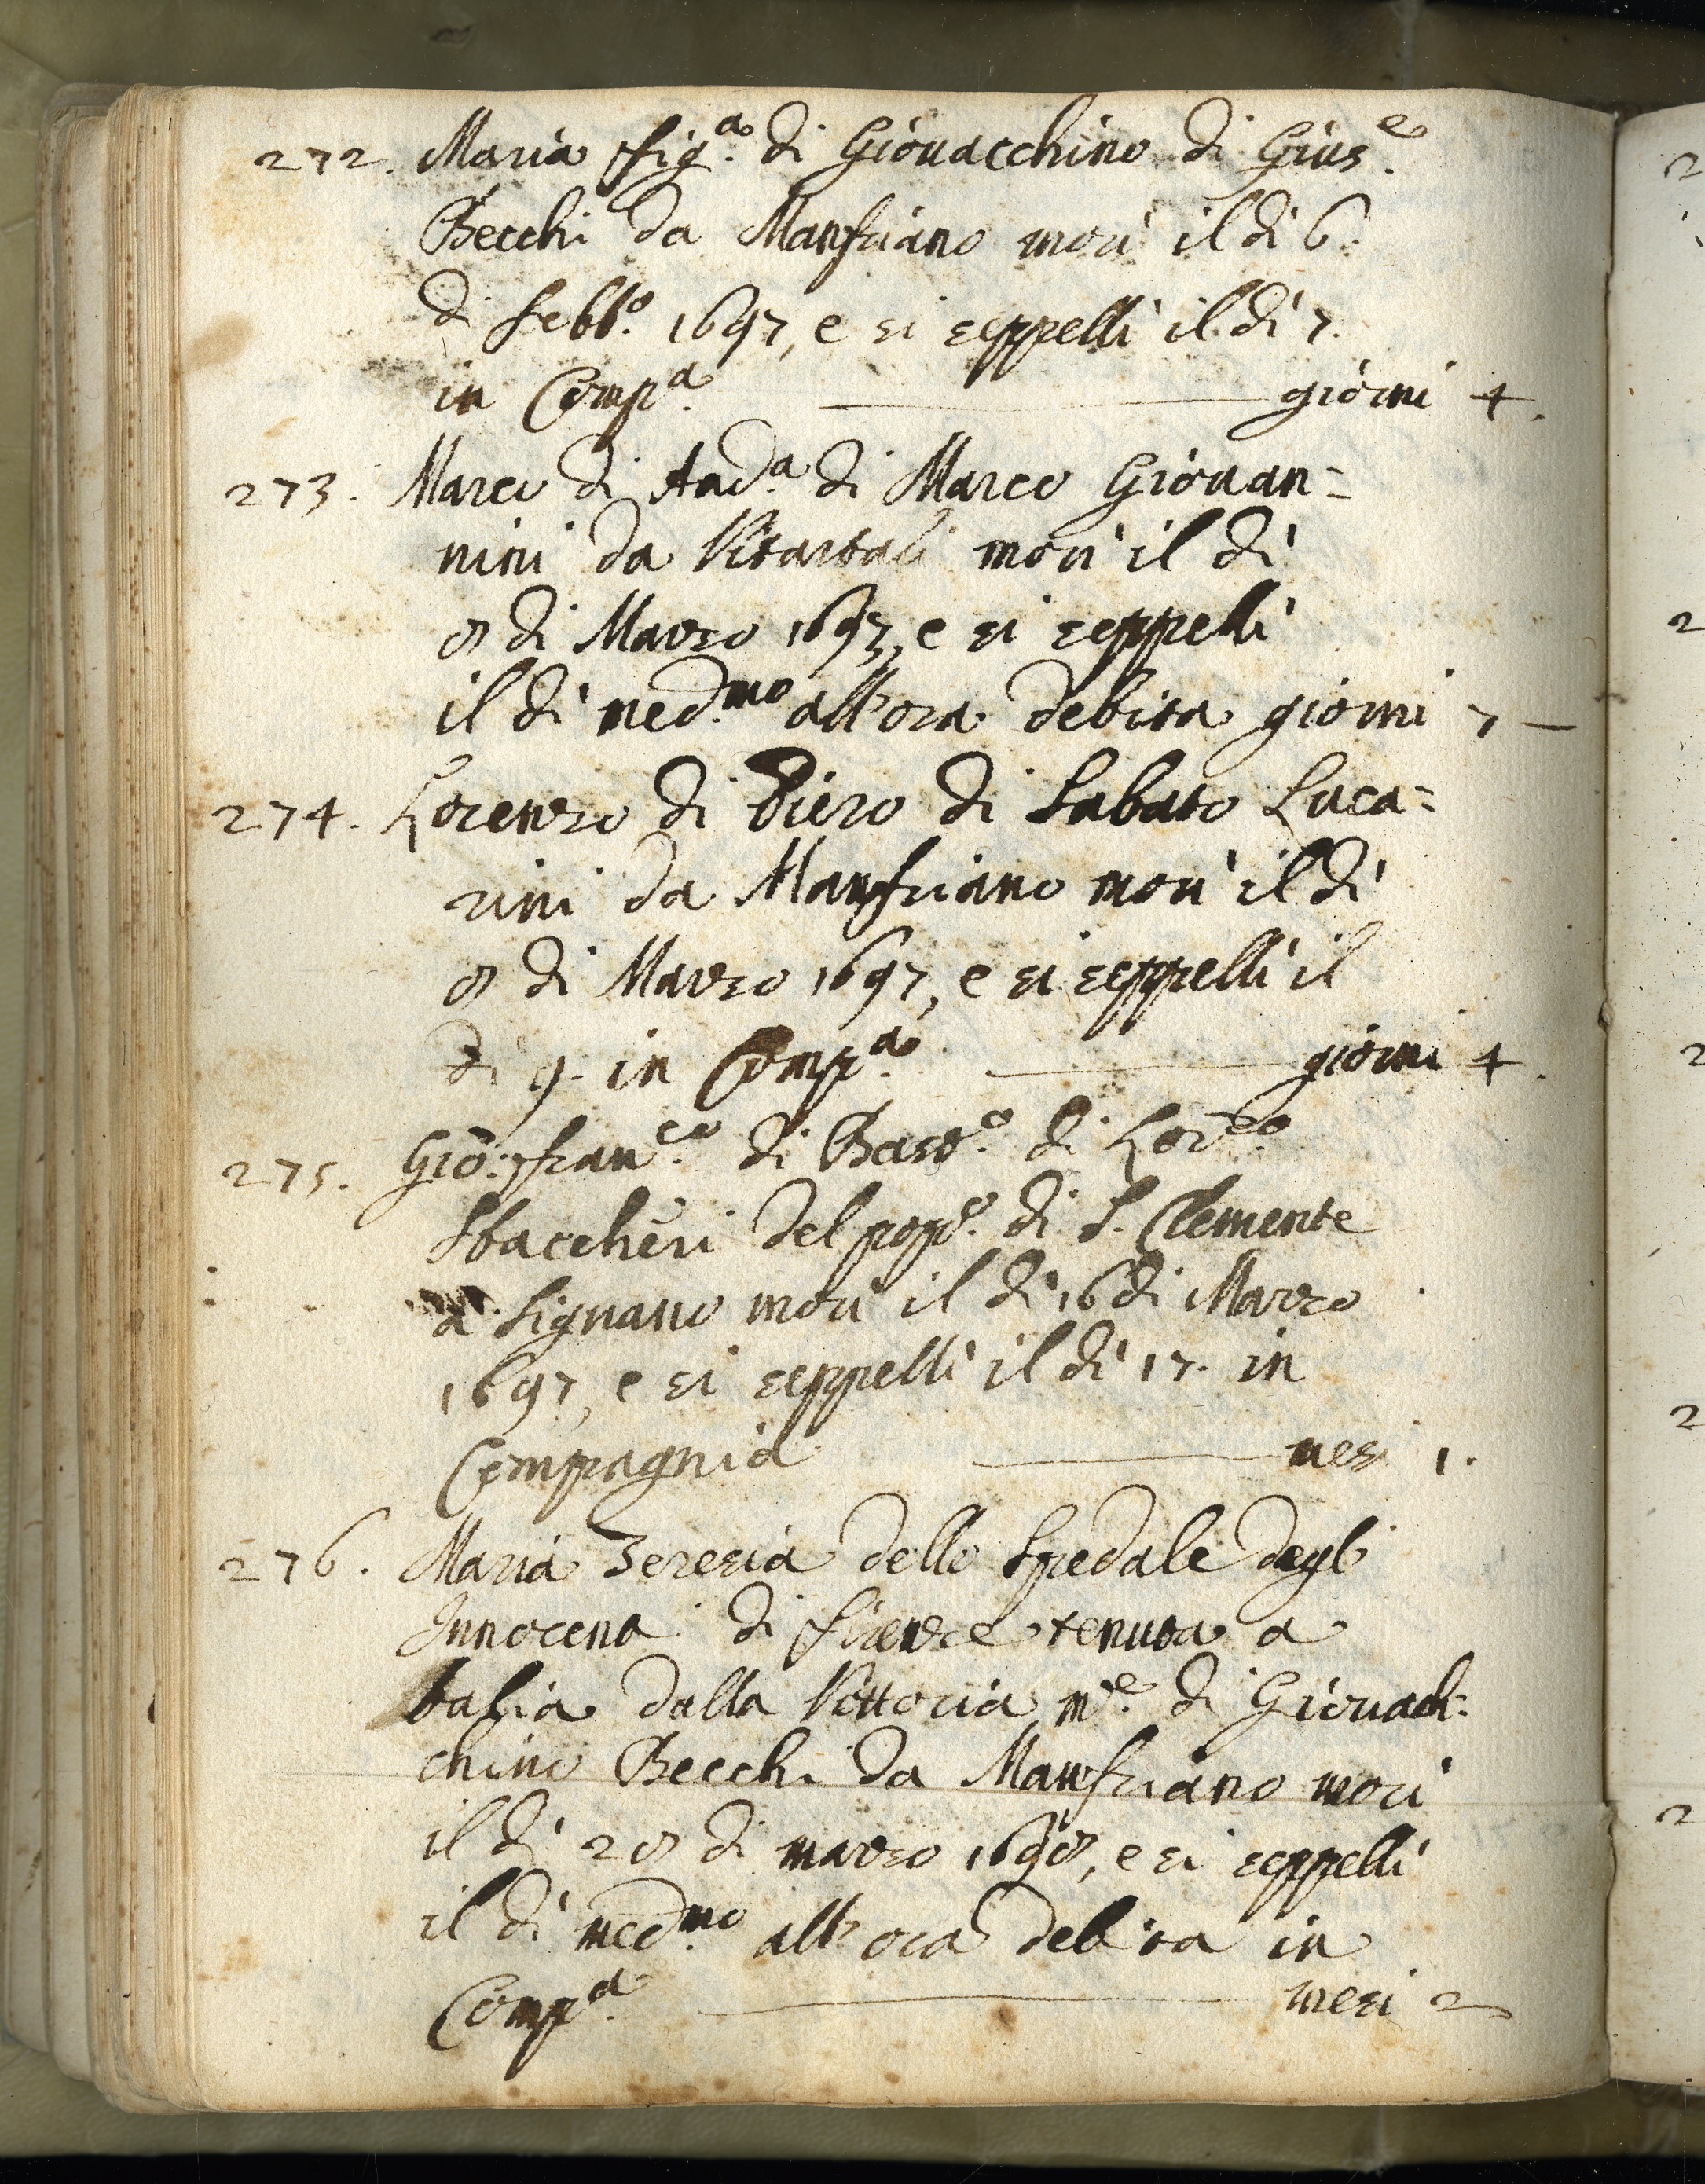 272. Maria fig.a di Giovacchino di Gius.e
Becchi da Manfriano morì il dì 6.
di febb.o 1697, e si seppellì il dì 7.
in Comp.a giorni 4.
273. Marco di And.a di Marco Giovan=
nini da morì il dì
8 di Marzo 1697, e si seppellì
il dì med.mo all'ora debita giorni 7
274. Lorenzo di Piero di Sabato Luca=
rini da Manfriano morì il dì
8 di Marzo 1697, e si seppellì il
dì 9. in Comp.a giorni 4.
275. Gio: fran.co di Bast.o di Lor.zo
Staccheri del pop.o di S. Clemente
a Signano morì il dì 16 di Marzo
1697, e si seppellì il dì 17. in
Compagnia mesi 1.
276. Maria Teresia dello Spedale degl'
Innocenti di firenze tenuta a
balia dalla Vittoria m.e di Giovach=
chino Becchi da Manfriano morì
il dì 28 di marzo 1698, e si seppellì
il dì med.mo all'ora debita in
Comp.a mesi 2